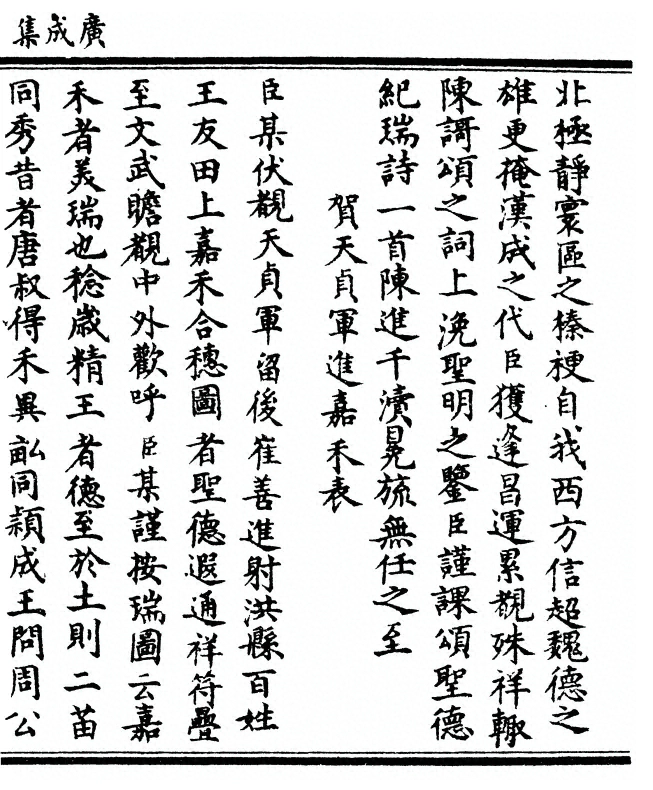 廣成集
北極靜寰區之榛梗自我西方信超魏德之
雄更掩漢成之代臣獲逢昌運累覩殊祥輙
陳謌頌之詞上浼聖明之鑒臣謹課頌聖德
紀瑞詩一首陳進千瀆冕旒無任之至
賀天貞軍進嘉禾表
臣某伏覩天貞軍留後崔善進射洪縣百姓
王友田上嘉禾合穗圖者聖德遐通祥符疊
至文武瞻覩中外歡呼臣某謹按瑞圖云嘉
禾者美瑞也稔歲精王者德至於土則二苗
同秀昔者唐叔得禾異畝同穎成王問周公